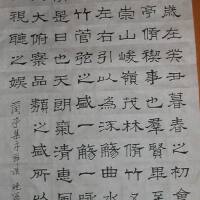 歲在癸丑暮春之初會
亭脩禊事也群賢畢至
崇山峻嶺茂林脩竹又
左右引以為流觴曲水
竹管弦之盛一觴一詠
是日也天朗氣清惠風
大俯察品類之盛所以
視聽之娛
蘭亭集序節選